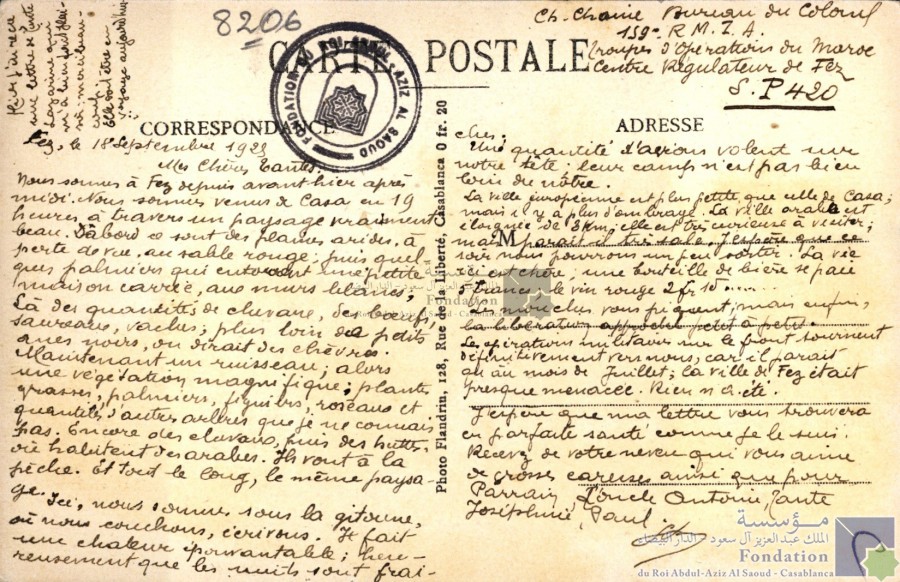 8206
CARTE POSTALE
CORRESPONDANCE
ADRESSE
FONDATION DU ROI ABDUL-AZIZ AL SAOUD
Ch. Chaine Bureau du Colonel
159e R.M.I.A.
Troupes d'Opérations du Maroc
Centre Régulateur de Fez
S.P 420
une lettre de
Fez, le 18 Septembre 1925
Mes Chères Tantes.
Nous sommes à Fez depuis avant hier après
midi. Nous sommes venus de Casa en 19
heures, à travers un paysage vraiment
beau. D'abord ce sont des plaines arides, à
perte de vue, au sable rouge; puis quel
ques palmiers qui entourent une petite
maison carrée, aux murs blancs,
Là des quantités de chevaux, des bœufs,
taureaux, vaches; plus loin de petits
ânes noirs, on dirait des chèvres.
Maintenant un ruisseau; alors
une végétation magnifique; plantes
grasses, palmiers, figuiers, roseaux et
quantités d'autres arbres que je ne connais
pas. Encore des chevaux, puis des huttes,
où habitent des arabes. Ils vont à la
pêche. Et tout le long, le même paysa-
ge.
Ici, nous sommes sous la gitoune,
où nous couchons, écrivons. Il fait
une chaleur épouvantable; heu-
reusement que les nuits sont fraî-
Photo Flandrin, 128, Rue de la Liberté, Casablanca 0 fr. 20
ches.
Une quantité d'avions volent sur
notre tête; leur camp n'est pas bien
loin du nôtre.
La ville européenne est plus petite, que celle de Casa;
mais il y a plus d'ombrage. La ville arabe est
éloignée de 3 km; elle est très curieuse à visiter;
mais paraît il très sale. J'espère que ce
M
soir nous pourrons un peu sortir. La vie
ici est chère; une bouteille de bière se paie
5 francs, le vin rouge 2 fr 10 ......
mouches vous piquent; mais enfin,
la libération approche petit à petit.
Les opérations militaires sur le front tournent
définitivement vers nous, car il paraît
qu'au mois de Juillet; la ville de Fez était
presque menacée. Rien n'a été.
J'espère que ma lettre vous trouvera
en parfaite santé comme je le suis.
Recevez de votre neveu qui vous aime
de grosses caresses ainsi que pour
Parrain, l'oncle Antonin, Tante
Joséphine, Paul
مؤسسة
الملك عبد العزيز آل سعود - الدار البيضاء
Fondation
du Roi Abdul-Aziz Al Saoud - Casablanca
مؤسسة
الملك عبد العزيز آل سعود - الدار البيضاء
Fondation
du Roi Abdul-Aziz Al Saoud - Casablanca